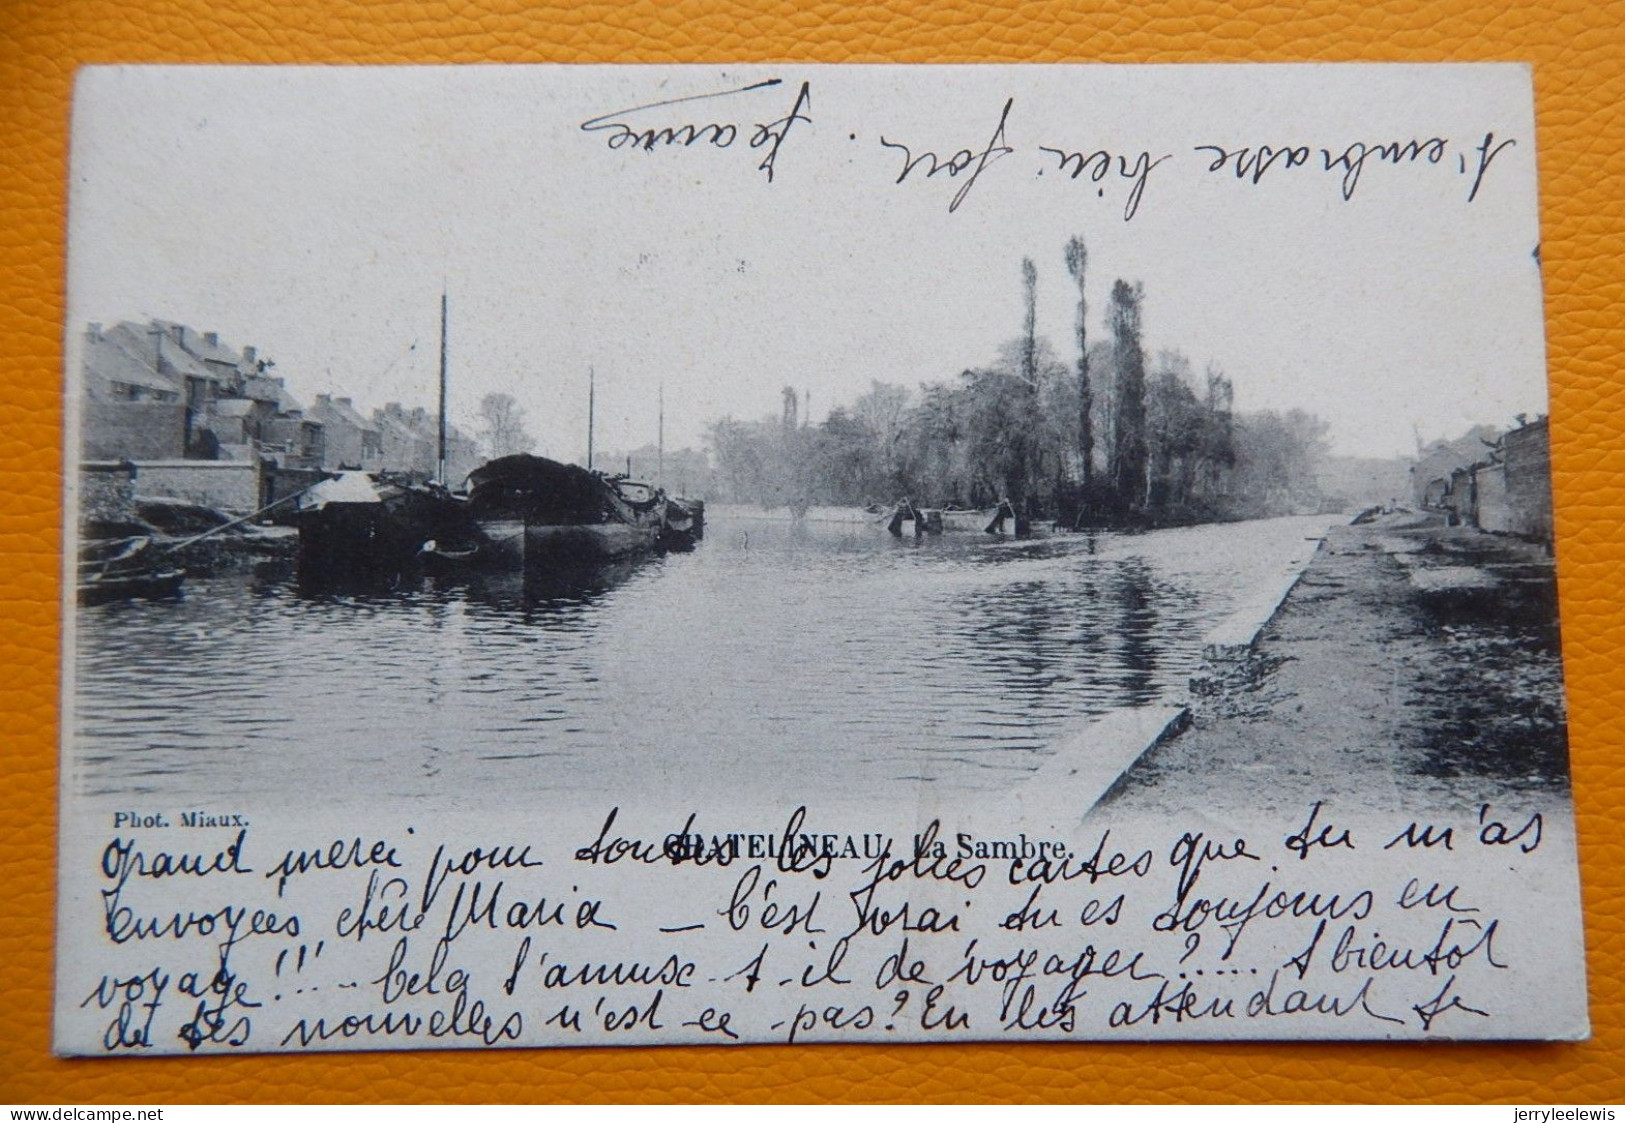 Phot. Miaux.
CHATELINEAU. La Sambre.
Grand merci pour toutes les jolies cartes que tu m'as
envoyées, chère Maria — C'est vrai tu es toujours en
voyage!!!... Cela t'amuse-t-il de voyager?..... A bientôt
de tes nouvelles n'est-ce-pas? En les attendant je
t'embrasse bien fort. Jeanne
www.delcampe.net
jerryleelewis